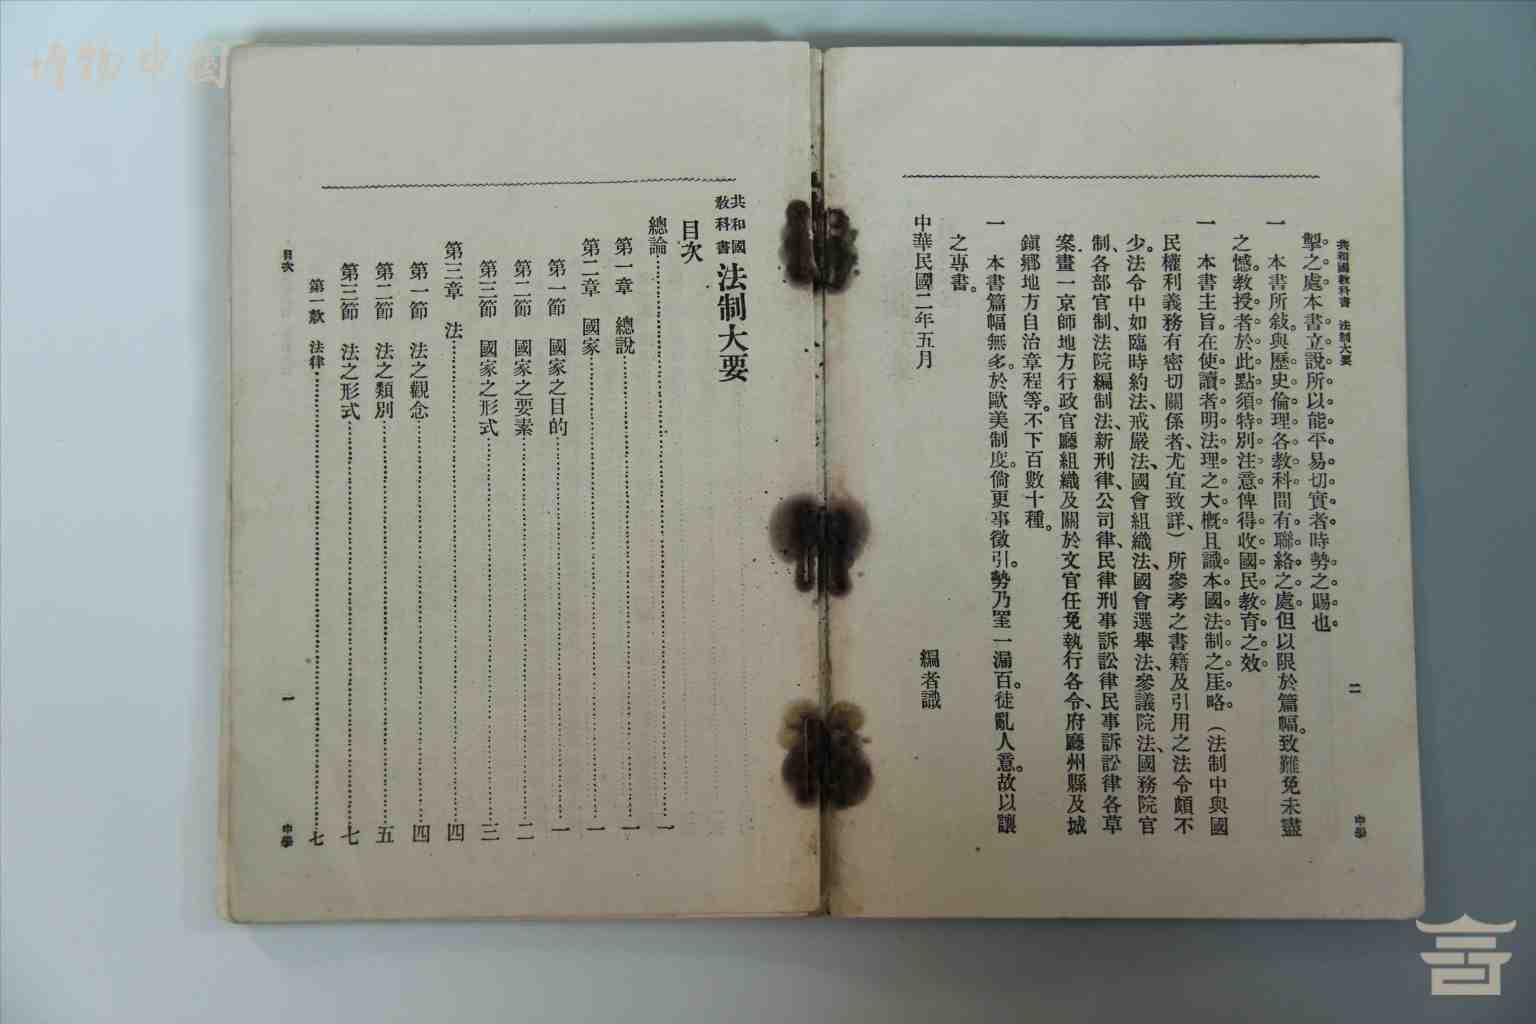 博物中國
共和國教科書 法制大要
二
中學
掣之處本書立說所以能平易切實者時勢之賜也。
一 本書所敍與歷史倫理各教科間有聯絡之處但以限於篇幅。致難免未盡
之憾。教授者於此點須特別注意俾得收國民教育之效。
一 本書主旨。在使讀者明法理之大概。且識本國法制之厓略。(法制中與國
民權利義務有密切關係者、尤宜致詳、)所參考之書籍及引用之法令頗不
少。法令中如臨時約法、戒嚴法、國會組織法、國會選舉法、參議院法、國務院官
制、各部官制、法院編制法、新刑律、公司律、民律刑事訴訟律民事訴訟律各草
案、畫一京師地方行政官廳組織及關於文官任免執行各令、府廳州縣及城
鎮鄉地方自治章程等。不下百數十種。
一 本書篇幅無多。於歐美制度。倘更事徵引。勢乃罣一漏百。徒亂人意。故以讓
之專書。
中華民國二年五月
編者識
共和國教科書 法制大要
目次
總論…………一
第一章 總說…………一
第二章 國家…………一
第一節 國家之目的…………一
第二節 國家之要素…………二
第三節 國家之形式…………三
第三章 法…………四
第一節 法之觀念…………四
第二節 法之類別…………五
第三節 法之形式…………七
第一款 法律…………七
目次
一
中學